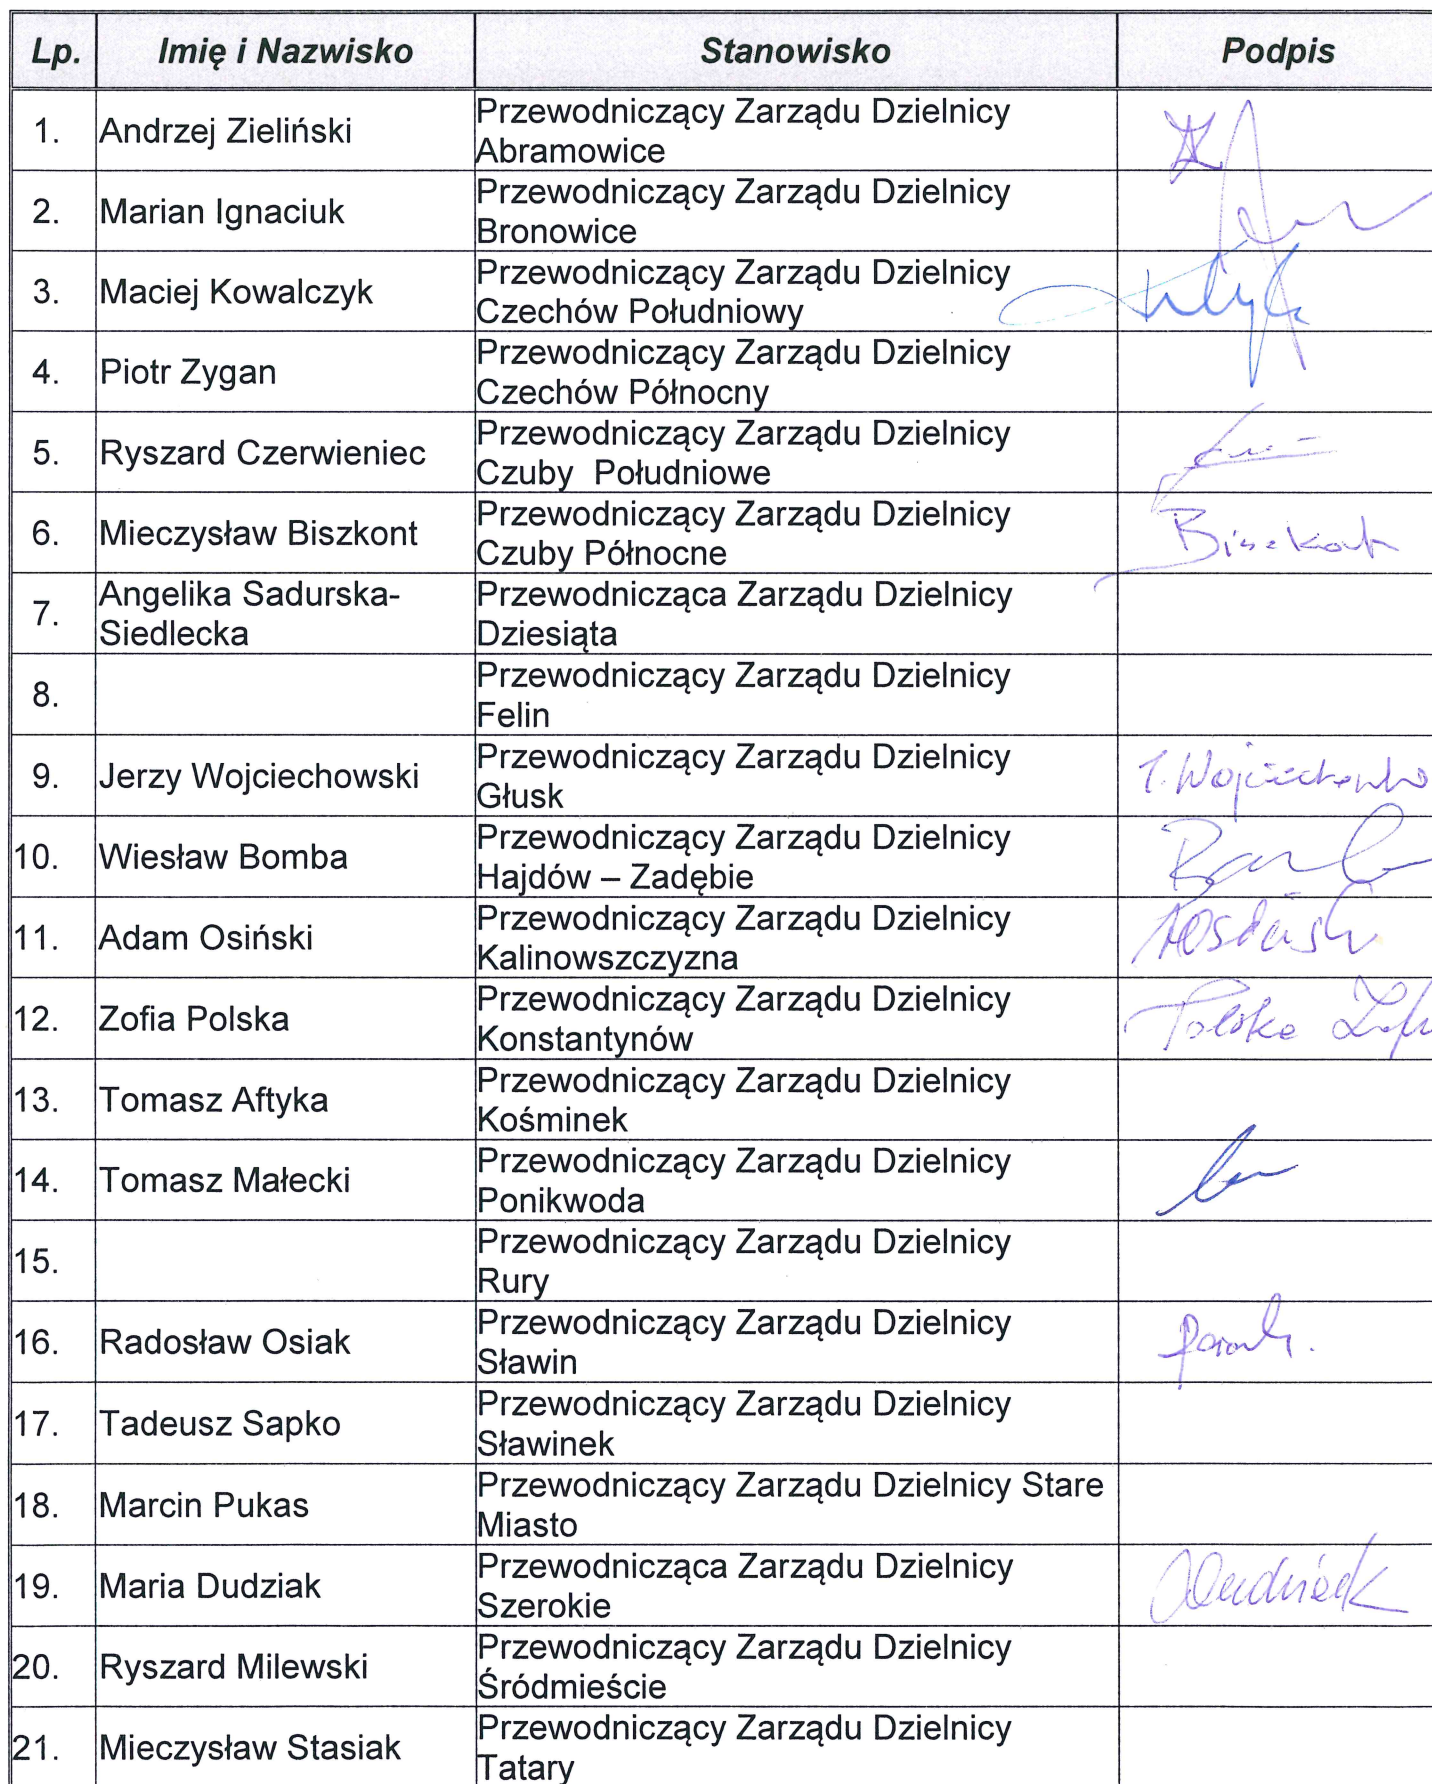 Lp. Imię i Nazwisko Stanowisko Podpis
1. Andrzej Zieliński Przewodniczący Zarządu Dzielnicy
Abramowice
2. Marian Ignaciuk Przewodniczący Zarządu Dzielnicy
Bronowice
3. Maciej Kowalczyk Przewodniczący Zarządu Dzielnicy
Czechów Południowy
4. Piotr Zygan Przewodniczący Zarządu Dzielnicy
Czechów Północny
5. Ryszard Czerwieniec Przewodniczący Zarządu Dzielnicy
Czuby Południowe
6. Mieczysław Biszkont Przewodniczący Zarządu Dzielnicy
Czuby Północne
Biszkont
7. Angelika Sadurska- Przewodnicząca Zarządu Dzielnicy
Siedlecka Dziesiąta
8. Przewodniczący Zarządu Dzielnicy
Felin
9. Jerzy Wojciechowski Przewodniczący Zarządu Dzielnicy
Głusk
10. Wiesław Bomba Przewodniczący Zarządu Dzielnicy
Hajdów – Zadębie
11. Adam Osiński Przewodniczący Zarządu Dzielnicy
Kalinowszczyzna
12. Zofia Polska Przewodniczący Zarządu Dzielnicy
Konstantynów
Polska
13. Tomasz Aftyka Przewodniczący Zarządu Dzielnicy
Kośminek
14. Tomasz Małecki Przewodniczący Zarządu Dzielnicy
Ponikwoda
15. Przewodniczący Zarządu Dzielnicy
Rury
16. Radosław Osiak Przewodniczący Zarządu Dzielnicy
Sławin
17. Tadeusz Sapko Przewodniczący Zarządu Dzielnicy
Sławinek
18. Marcin Pukas Przewodniczący Zarządu Dzielnicy Stare
Miasto
19. Maria Dudziak Przewodnicząca Zarządu Dzielnicy
Szerokie
Dudziak
20. Ryszard Milewski Przewodniczący Zarządu Dzielnicy
Śródmieście
21. Mieczysław Stasiak Przewodniczący Zarządu Dzielnicy
Tatary